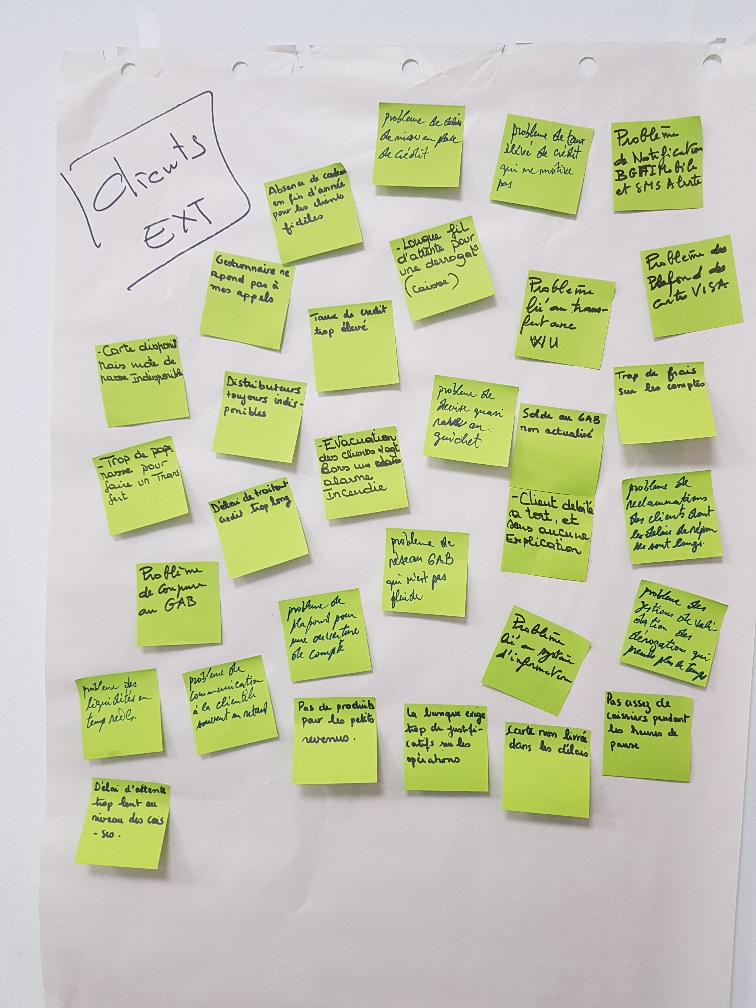 Clients
EXT
problème de délais
de mise en place
de crédit
problème de taux
élevé de crédit
qui ne motive
pas
Problème
de Notification
BGFIMobile
et SMS Alerte
Absence de cadeau
en fin d'année
pour les clients
fidèles
- Longue fil
d'attente pour
une derrogat°
(caisse)
Problème des
Plafond des
carte VISA
Gestionnaire ne
repond pas à
mes appels
Problème
lié au trans-
fert avec
WU
Taux de credit
trop élevé
- Carte disponi
mais mote de
passe Indisponible
Distributeurs
toujours indis-
ponibles
problème de
devise quasi
au
guichet
Solde au GAB
non actualisé
Trop de frais
sur les comptes
- Trop de pap
rasse pour
faire un Trans
fert
Délai de traitant
credit trop long
- EVacuation
des clients d'agt
lors un
alarme
Incendie
- Client debité
a tort, et
sans aucune
Explication
problème de
reclammations
des clients dont
les délais de répon
se sont longs.
Problème
de coupure
au GAB
problème de
réseau GAB
qui n'est pas
fluide
problème de
plafond pour
une ouverture
de compte
Problème
lié au système
d'information
problème des
gestions de vali
dation des
dérogations qui
prends plus de temps
problème des
liquidités en
temps réels.
problème de
communication
à la clientèle
souvent en retard
Pas de produits
pour les petits
revenus.
La banque exige
trop de justifi-
catifs sur les
opérations
Carte non livrée
dans les délais
Pas assez de
caissiers pendant
les heures de
pause
Délai d'attente
trop lent au
niveau des cais
- ses.